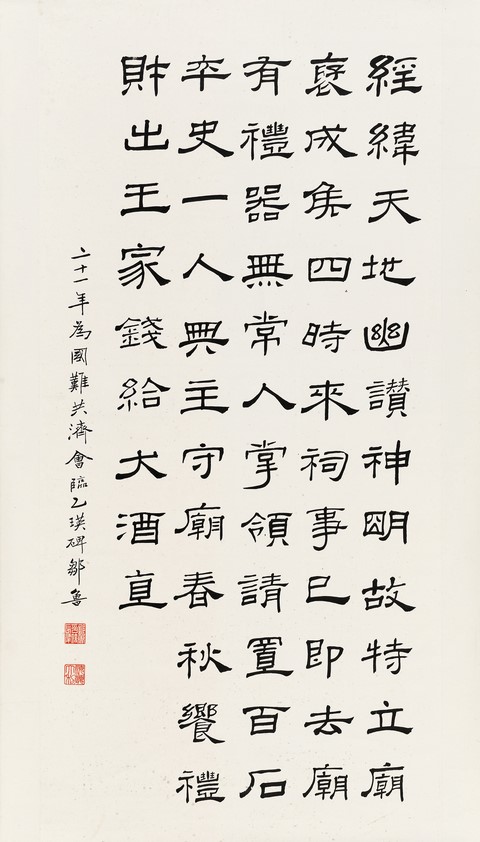 經緯天地幽讃神明故特立廟
褒成矦四時來祠事已即去廟
有禮器無常人掌領請置百石
卒史一人典主守廟春秋饗禮
財出王家錢給犬酒直
二十一年為國難共濟會臨乙瑛碑鄒魯